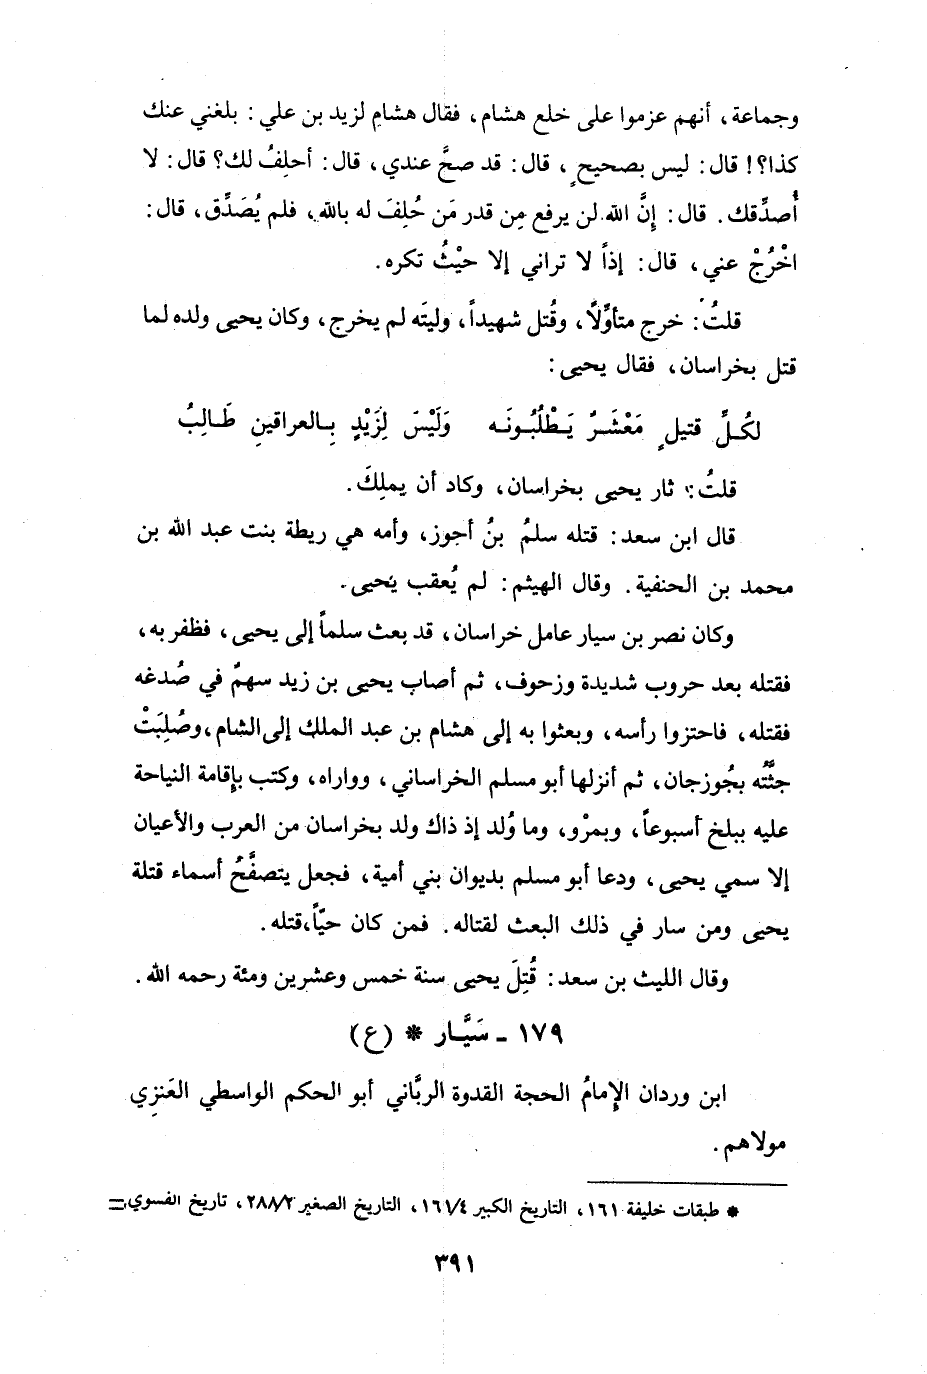 وجماعة، أنهم عزموا على خلع هشام، فقال هشام لزيد بن علي: بلغني عنك
كذا؟! قال: ليس بصحيحٍ، قال: قد صحَّ عندي، قال: أحلِفُ لك؟ قال: لا
أُصدِّقك. قال: إنَّ الله لن يرفع مِن قدر مَن حُلِفَ له بالله، فلم يُصَدِّق، قال:
اخْرُجْ عني، قال: إذاً لا تراني إلا حيْثُ تكره.
قلتُ: خرج متأوِّلاً، وقُتل شهيداً، وليتَه لم يخرج، وكان يحيى ولده لما
قتل بخراسان، فقال يحيى:
لكُـلِّ قتيلٍ مَعْشَـرٌ يَـطْلُبُـونَـه وَلَيْسَ لِزَيْدٍ بِـالعراقينِ طَـالِبُ
قلتُ: ثار يحيى بخراسان، وكاد أن يملِكَ.
قال ابن سعد: قتله سلمُ بنُ أجوز، وأمه هي ريطة بنت عبد الله بن
محمد بن الحنفية. وقال الهيثم: لم يُعقب يَحيى.
وكان نصر بن سيار عامل خراسان، قد بعث سلماً إلى يحيى، فظفر به،
فقتله بعد حروب شديدة وزحوف، ثم أصاب يحيى بن زيد سهمٌ في صُدغه
فقتله، فاحتزوا رأسه، وبعثوا به إلى هشام بن عبد الملك إلى الشام، وصُلِبَتْ
جثَّتُه بجُوزجان، ثم أنزلها أبو مسلم الخراساني، وواراه، وكتب بإقامة النياحة
عليه ببلخ أسبوعاً، وبمرْو، وما وُلد إذ ذاك ولد بخراسان من العرب والأعيان
إلا سمي يحيى، ودعا أبو مسلم بديوان بني أمية، فجعل يتصفَّحُ أسماء قتلة
يحيى ومن سار في ذلك البعث لقتاله. فمن كان حيّاً، قتله.
وقال الليث بن سعد: قُتِلَ يحيى سنة خمس وعشرين ومئة رحمه الله.
١٧٩ - سَيَّـار * (ع)
ابن وردان الإمامُ الحجة القدوة الربَّاني أبو الحكم الواسطي العَنزِي
مولاهم.
* طبقات خليفة ١٦١، التاريخ الكبير ١٦١/٤، التاريخ الصغير ٢٨٨/٢، تاريخ الفسوي =
٣٩١